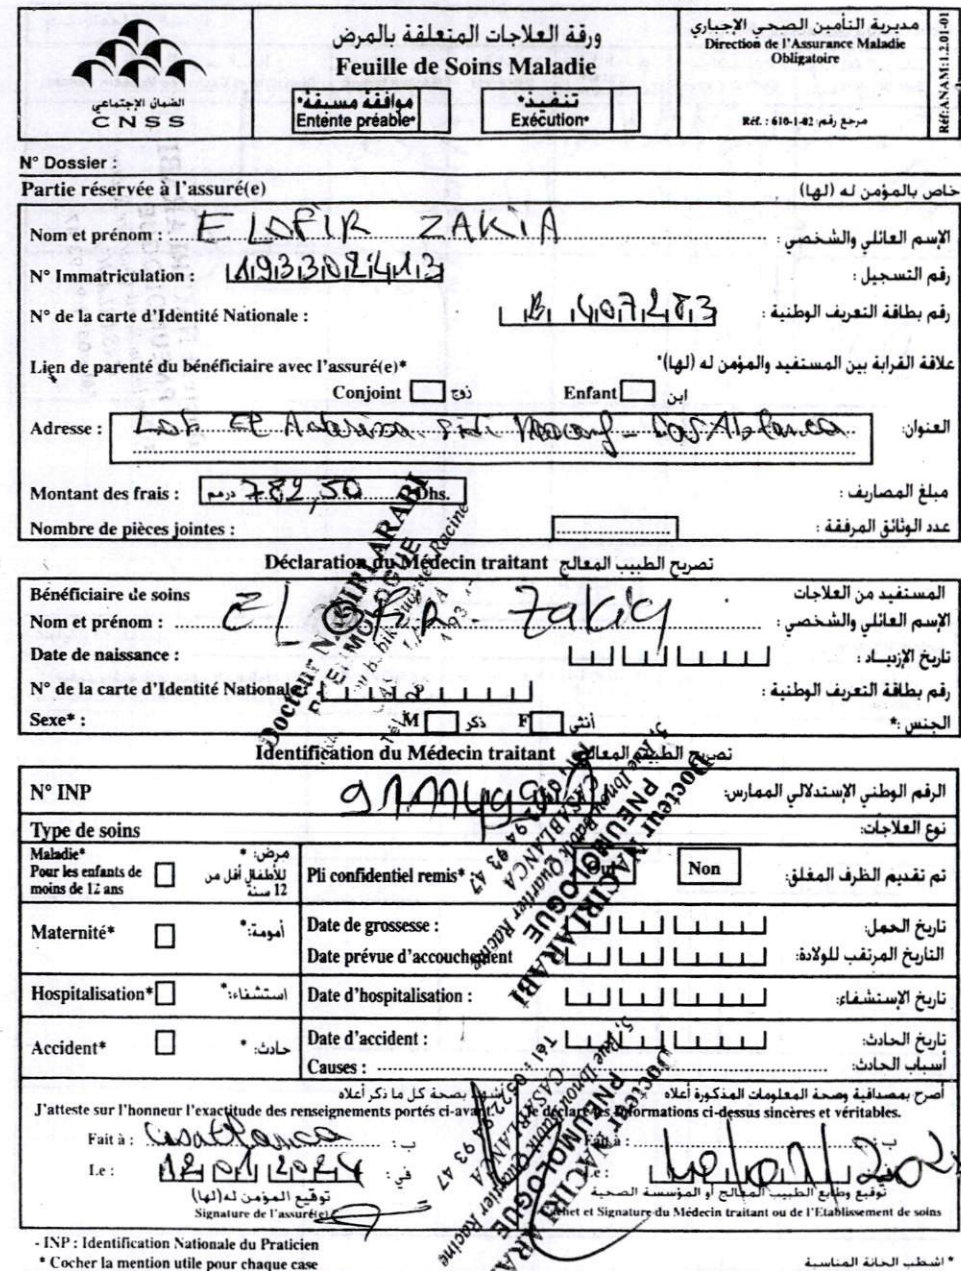 الضمان الإجتماعي
CNSS
ورقة العلاجات المتعلقة بالمرض
Feuille de Soins Maladie
موافقة مسبقة*
Entente préable*
تنفيذ*
Exécution*
مديرية التأمين الصحي الإجباري
Direction de l'Assurance Maladie
Obligatoire
Réf. : 610-1-02 مرجع رقم:
Réf:ANAM:1.2.01-01
N° Dossier :
Partie réservée à l'assuré(e) خاص بالمؤمن له (لها)
Nom et prénom : EL OFIR ZAKIA الإسم العائلي والشخصي :
N° Immatriculation : رقم التسجيل :
N° de la carte d'Identité Nationale : رقم بطاقة التعريف الوطنية :
Lien de parenté du bénéficiaire avec l'assuré(e)* علاقة القرابة بين المستفيد والمؤمن له (لها)*
Conjoint زوج Enfant ابن
Adresse : Lot El Casablanca العنوان:
Montant des frais : 782,50 درهم Dhs. مبلغ المصاريف :
Nombre de pièces jointes : عدد الوثائق المرفقة :
Déclaration du Médecin traitant تصريح الطبيب المعالج
Bénéficiaire de soins المستفيد من العلاجات
Nom et prénom : EL OFIR Zakia الإسم العائلي والشخصي :
Date de naissance : تاريخ الإزديـاد :
N° de la carte d'Identité Nationale رقم بطاقة التعريف الوطنية :
Sexe* : M ذكر F أنثى الجنس :*
Docteur NACIRI ARABI
PNEUMOLOGUE
Identification du Médecin traitant تصريح الطبيب المعالج
N° INP الرقم الوطني الإستدلالي الممارس:
Type de soins نوع العلاجات:
Maladie* مرض: *
Pour les enfants de للأطفال أقل من
moins de 12 ans 12 سنة
Pli confidentiel remis* Oui Non تم تقديم الظرف المغلق:
Maternité* أمومة:*
Date de grossesse : تاريخ الحمل:
Date prévue d'accouchement التاريخ المرتقب للولادة:
Hospitalisation* استشفاء:* Date d'hospitalisation : تاريخ الإستشفاء:
Accident* حادث: *
Date d'accident : تاريخ الحادث:
Causes : أسباب الحادث:
Docteur NACIRI ARABI
PNEUMOLOGUE
5, Rue Ibnou Babik Quartier Racine
CASABLANCA
أشهد بصحة كل ما ذكر أعلاه أصرح بمصداقية وصحة المعلومات المذكورة أعلاه
J'atteste sur l'honneur l'exactitude des renseignements portés ci-avant. Je déclare les informations ci-dessus sincères et véritables.
Fait à : Casablanca ب : Fait à : ب :
Le : 12 01 2024 في : Le : في :
توقيع المؤمن له(لها) توقيع وطابع الطبيب المعالج أو المؤسسة الصحية
Signature de l'assuré(e) Cachet et Signature du Médecin traitant ou de l'Etablissement de soins
Docteur NACIRI ARABI
PNEUMOLOGUE
5, Rue Ibnou Babik Quartier Racine
CASABLANCA
Tél : 0522 94 93 47
- INP : Identification Nationale du Praticien
* Cocher la mention utile pour chaque case * اشطب الخانة المناسبة